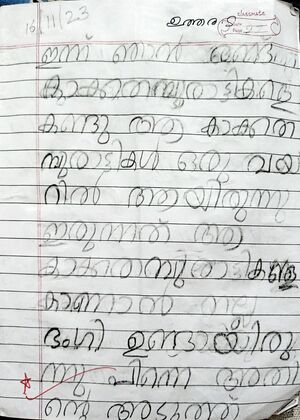 16/11/23
ഉത്തര
classmate
ഇന്ന് ഞാൻ രണ്ട്
കാക്കതമ്പുരാട്ടികളെ
കണ്ടു ആ കാക്കത
മ്പുരാട്ടികൾ ഒരു വയ
റിൽ ആയിരുന്നു
ഇരുന്നത് ആ
കാക്കതമ്പുരാട്ടികളെ
കാണാൻ നല്ല
ഭംഗി ഉണ്ടായിരു
ന്നു പിന്നെ അതി
ന്റെ അടുത്ത്